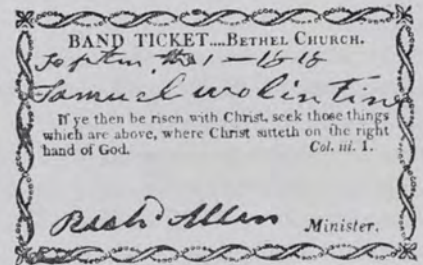 BAND TICKET....BETHEL CHURCH.
1-1818
Samuel
If ye then be risen with Christ, seek those things
which are above, where Christ sitteth on the right
hand of God. Col. iii. 1.
Richd Allen Minister.